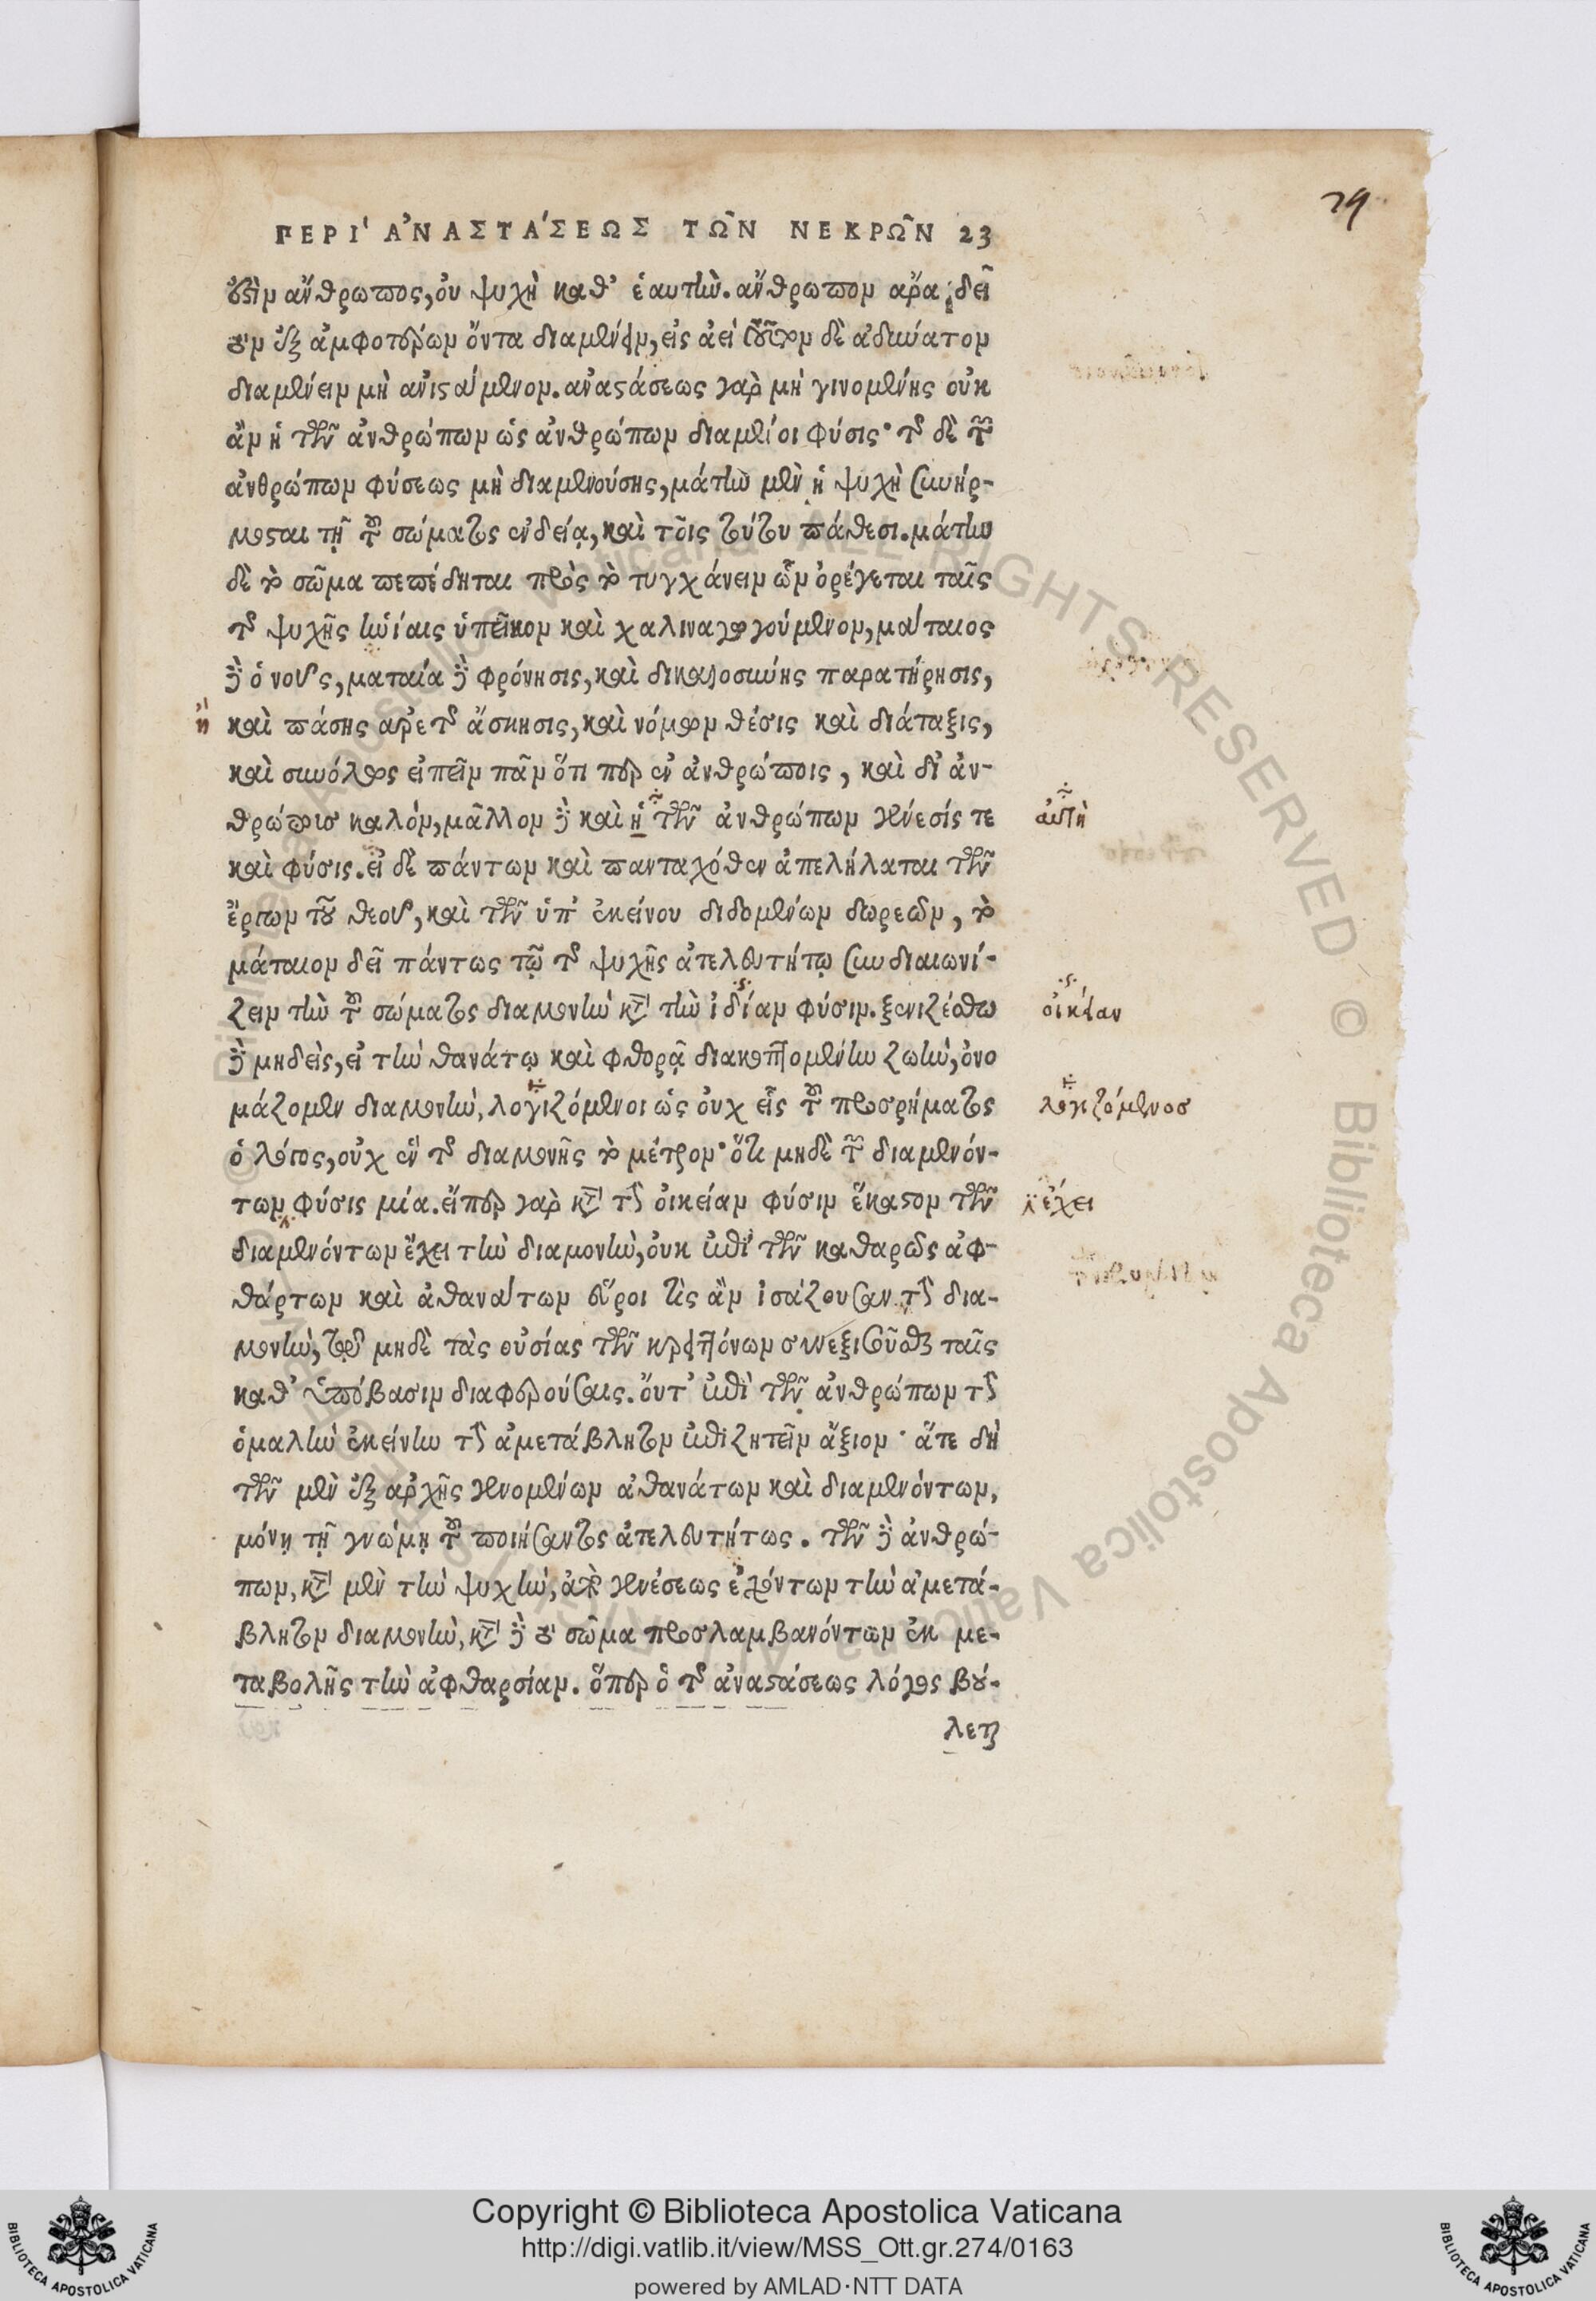 29
ΠΕΡΙ' ἈΝΑΣΤΑ'ΣΕΩΣ ΤΩ͂Ν ΝΕΚΡΩ͂Ν 23
ἐστὶν ἄνθρωπος, ὀυ ψυχὴ καθ' ἑαυτὴν. ἄνθρωπον αρα δεῖ
τὸν ἐξ ἀμφοτέρων ὄντα διαμένειν, εἰς ἀεὶ τοῦτον δὲ ἀδύνατον
διαμένειν μὴ ανιστάμενον. αναστάσεως γὰρ μὴ γινομένης οὐκ
ἂν ἡ τῶν ἀνθρώπων ὡς ἀνθρώπων διαμένοι φύσις· τῆς δὲ τῶν
ἀνθρώπων φύσεως μὴ διαμενούσης, μάτην μὲν ἡ ψυχὴ συνήρ-
μοσται τῇ τοῦ σώματος ἐνδείᾳ, καὶ τοῖς τούτου πάθεσι. μάτην
δὲ τὸ σῶμα πεπέδηται πρὸς τὸ τυγχάνειν ὧν ὀρέγεται ταῖς
τῆς ψυχῆς ἡνίαις ὑπεῖκον καὶ χαλιναγωγούμενον, μάταιος
δὲ ὁ νοῦς, ματαία δὲ φρόνησις, καὶ δικαιοσύνης παρατήρησις,
ἢ καὶ πάσης αρετῆς ἄσκησις, καὶ νόμων θέσις καὶ διάταξις,
καὶ συνόλως εἰπεῖν πᾶν ὅτι περ ἐν ἀνθρώποις, καὶ δι' ἀν-
θρώποισ καλόν, μᾶλλον δὲ καὶ ἡ τῶν ἀνθρώπων γένεσίς τε
αὐτὴ
καὶ φύσις. εἰ δὲ πάντων καὶ πανταχόθεν ἀπελήλαται τῶν
ἔργων τοῦ θεοῦ, καὶ τῶν ὑπ' ἐκείνου διδομένων δωρεῶν, τὸ
μάταιον δεῖ πάντως τῷ τῆς ψυχῆς ἀτελευτήτῳ συνδιαιωνί-
ζειν τὴν τοῦ σώματος διαμονὴν κατὰ τὴν ἰδίαν φύσιν. ξενιζέσθω
οἰκείαν
δὲ μηδεὶς, εἰ τὴν θανάτῳ καὶ φθορᾷ διακοπτομένην ζωὴν, ὀνο
μάζομεν διαμονὴν, λογιζόμενοι ὡς οὐχ εἷς τοῦ προσρήματος
λογιζόμενοσ
ὁ λόγος, οὐχ ἓν τῆς διαμονῆς τὸ μέτρον· ὅτι μηδὲ τῶν διαμενόν-
των φύσις μία. εἴπερ γὰρ κατὰ τὴν οἰκείαν φύσιν ἕκαστον τῶν
ἔχει
διαμενόντων ἔχει τὴν διαμονὴν, ὀυκ ἐπὶ τῶν καθαρῶς ἀφ-
θάρτων καὶ ἀθανάτων εὕροι τις ἂν ἰσάζουσαν τὴν δια-
μονὴν, τῷ μηδὲ τὰς οὐσίας τῶν κρειττόνων συνεξισοῦσθαι ταῖς
καθ' ὑπόβασιν διαφερούσαις. ὄυτ' ἐπὶ τῶν ἀνθρώπων τὴν
ὁμαλὴν ἐκείνην τὴν ἀμετάβλητον ἐπιζητεῖν ἄξιον· ἅτε δὴ
τῶν μὲν ἐξ αρχῆς γενομένων ἀθανάτων καὶ διαμενόντων,
μόνῃ τῇ γνώμῃ τοῦ ποιήσαντος ἀτελευτήτως. τῶν δὲ ἀνθρώ-
πων, κατὰ μὲν τὴν ψυχὴν, ἀπὸ γενέσεως ἐχόντων τὴν ἀμετά-
βλητον διαμονὴν, κατὰ δὲ τὸ σῶμα προσλαμβανόντων ἐκ με-
ταβολῆς τὴν ἀφθαρσίαν. ὅπερ ὁ τῆς ἀναστάσεως λόγος βού-
λεται
Copyright © Biblioteca Apostolica Vaticana
http://digi.vatlib.it/view/MSS_Ott.gr.274/0163
powered by AMLAD·NTT DATA
BIBLIOTECA APOSTOLICA VATICANA
BIBLIOTECA APOSTOLICA VATICANA
© Biblioteca Apostolica Vaticana ALL RIGHTS RESERVED © Biblioteca Apostolica Vaticana